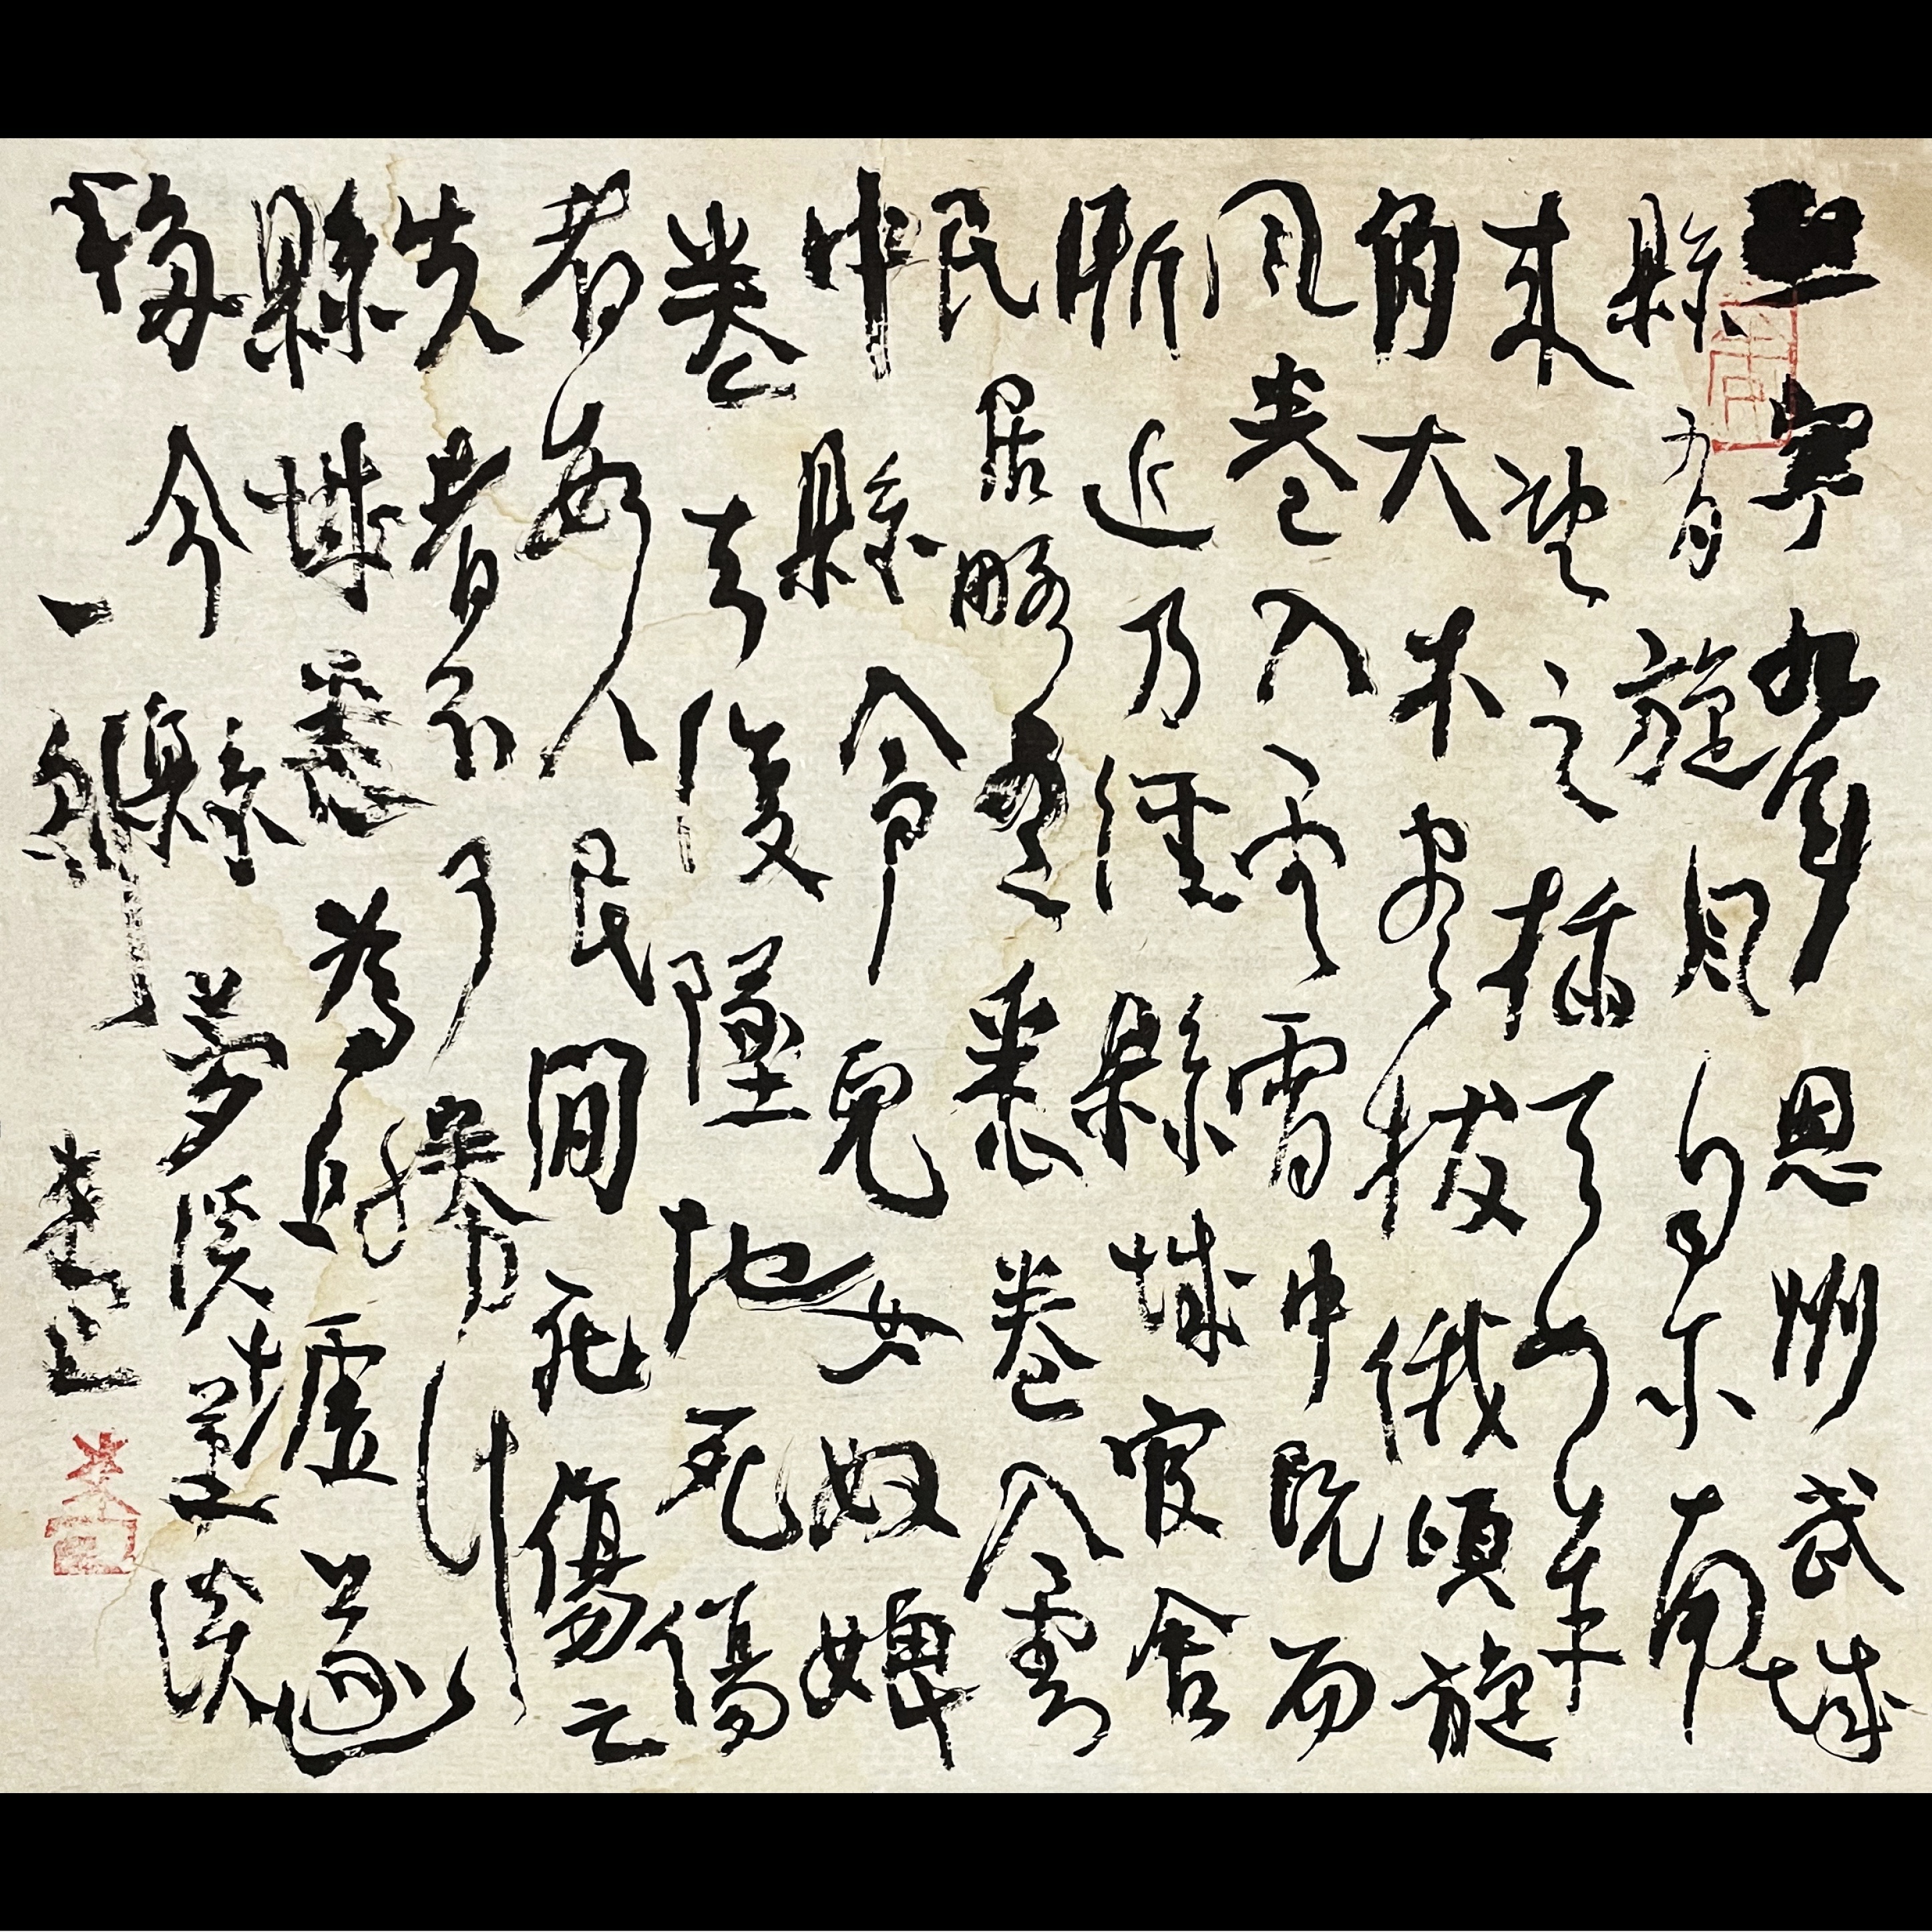 熙寧九年恩州武城
縣有旋風自東南
來望之插天如羊
角大木盡拔俄頃旋
風卷入雲霄中既而
漸近乃經縣城官舍
民居略盡悉卷入雲
中縣令兒女奴婢
卷去復墜地死傷
者數人民間死傷亡
失者不可勝計
縣城悉為丘墟遂
移今縣夢溪筆談
一則